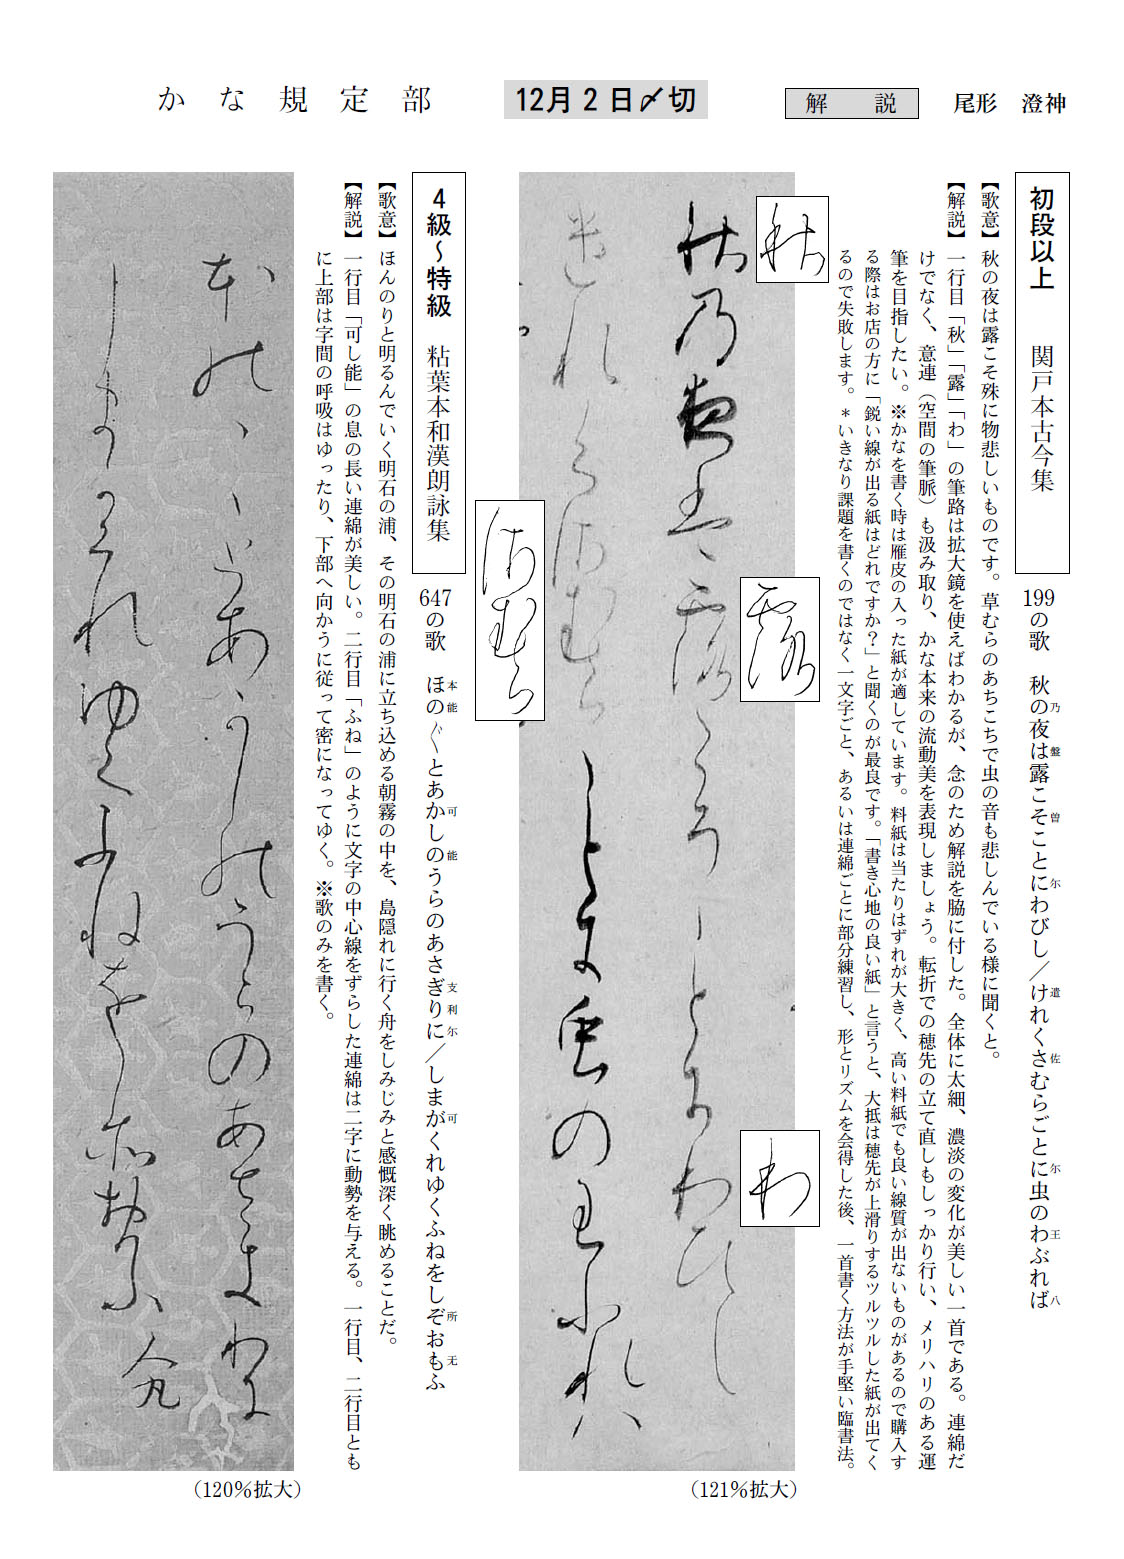 かな規定部
12月2日〆切
解説
尾形 澄神
初段以上 関戸本古今集
199の歌 秋の夜は露こそことにわびし／けれくさむらごとに虫のわぶれば
乃 盤 曽 尓 遣 佐 尓 王 八
【歌意】秋の夜は露こそ殊に物悲しいものです。草むらのあちこちで虫の音も悲しんでいる様に聞くと。
【解説】一行目「秋」「露」「わ」の筆路は拡大鏡を使えばわかるが、念のため解説を脇に付した。全体に太細、濃淡の変化が美しい一首である。連綿だ
けでなく、意連（空間の筆脈）も汲み取り、かな本来の流動美を表現しましょう。転折での穂先の立て直しもしっかり行い、メリハリのある運
筆を目指したい。※かなを書く時は雁皮の入った紙が適しています。料紙は当たりはずれが大きく、高い料紙でも良い線質が出ないものがあるので購入す
る際はお店の方に「鋭い線が出る紙はどれですか？」と聞くのが最良です。「書き心地の良い紙」と言うと、大抵は穂先が上滑りするツルツルした紙が出てく
るので失敗します。＊いきなり課題を書くのではなく一文字ごと、あるいは連綿ごとに部分練習し、形とリズムを会得した後、一首書く方法が手堅い臨書法。
秋
露
わ
秋乃夜盤露こ曽こと尓わひし
遣れくさむら
ことに虫の王ふれ八
（121％拡大）
4級～特級 粘葉本和漢朗詠集
647の歌 ほの〲とあかしのうらのあさぎりに／しまがくれゆくふねをしぞおもふ
本 能 可 能 支 利 尓 可 所 无
【歌意】ほんのりと明るんでいく明石の浦、その明石の浦に立ち込める朝霧の中を、島隠れに行く舟をしみじみと感慨深く眺めることだ。
【解説】一行目「可し能」の息の長い連綿が美しい。二行目「ふね」のように文字の中心線をずらした連綿は二字に動勢を与える。一行目、二行目とも
に上部は字間の呼吸はゆったり、下部へ向かうに従って密になってゆく。※歌のみを書く。
本能ゝゝとあ可し能うらのあさ支利尓
しま可くれゆくふねをし所おもふ
（120％拡大）